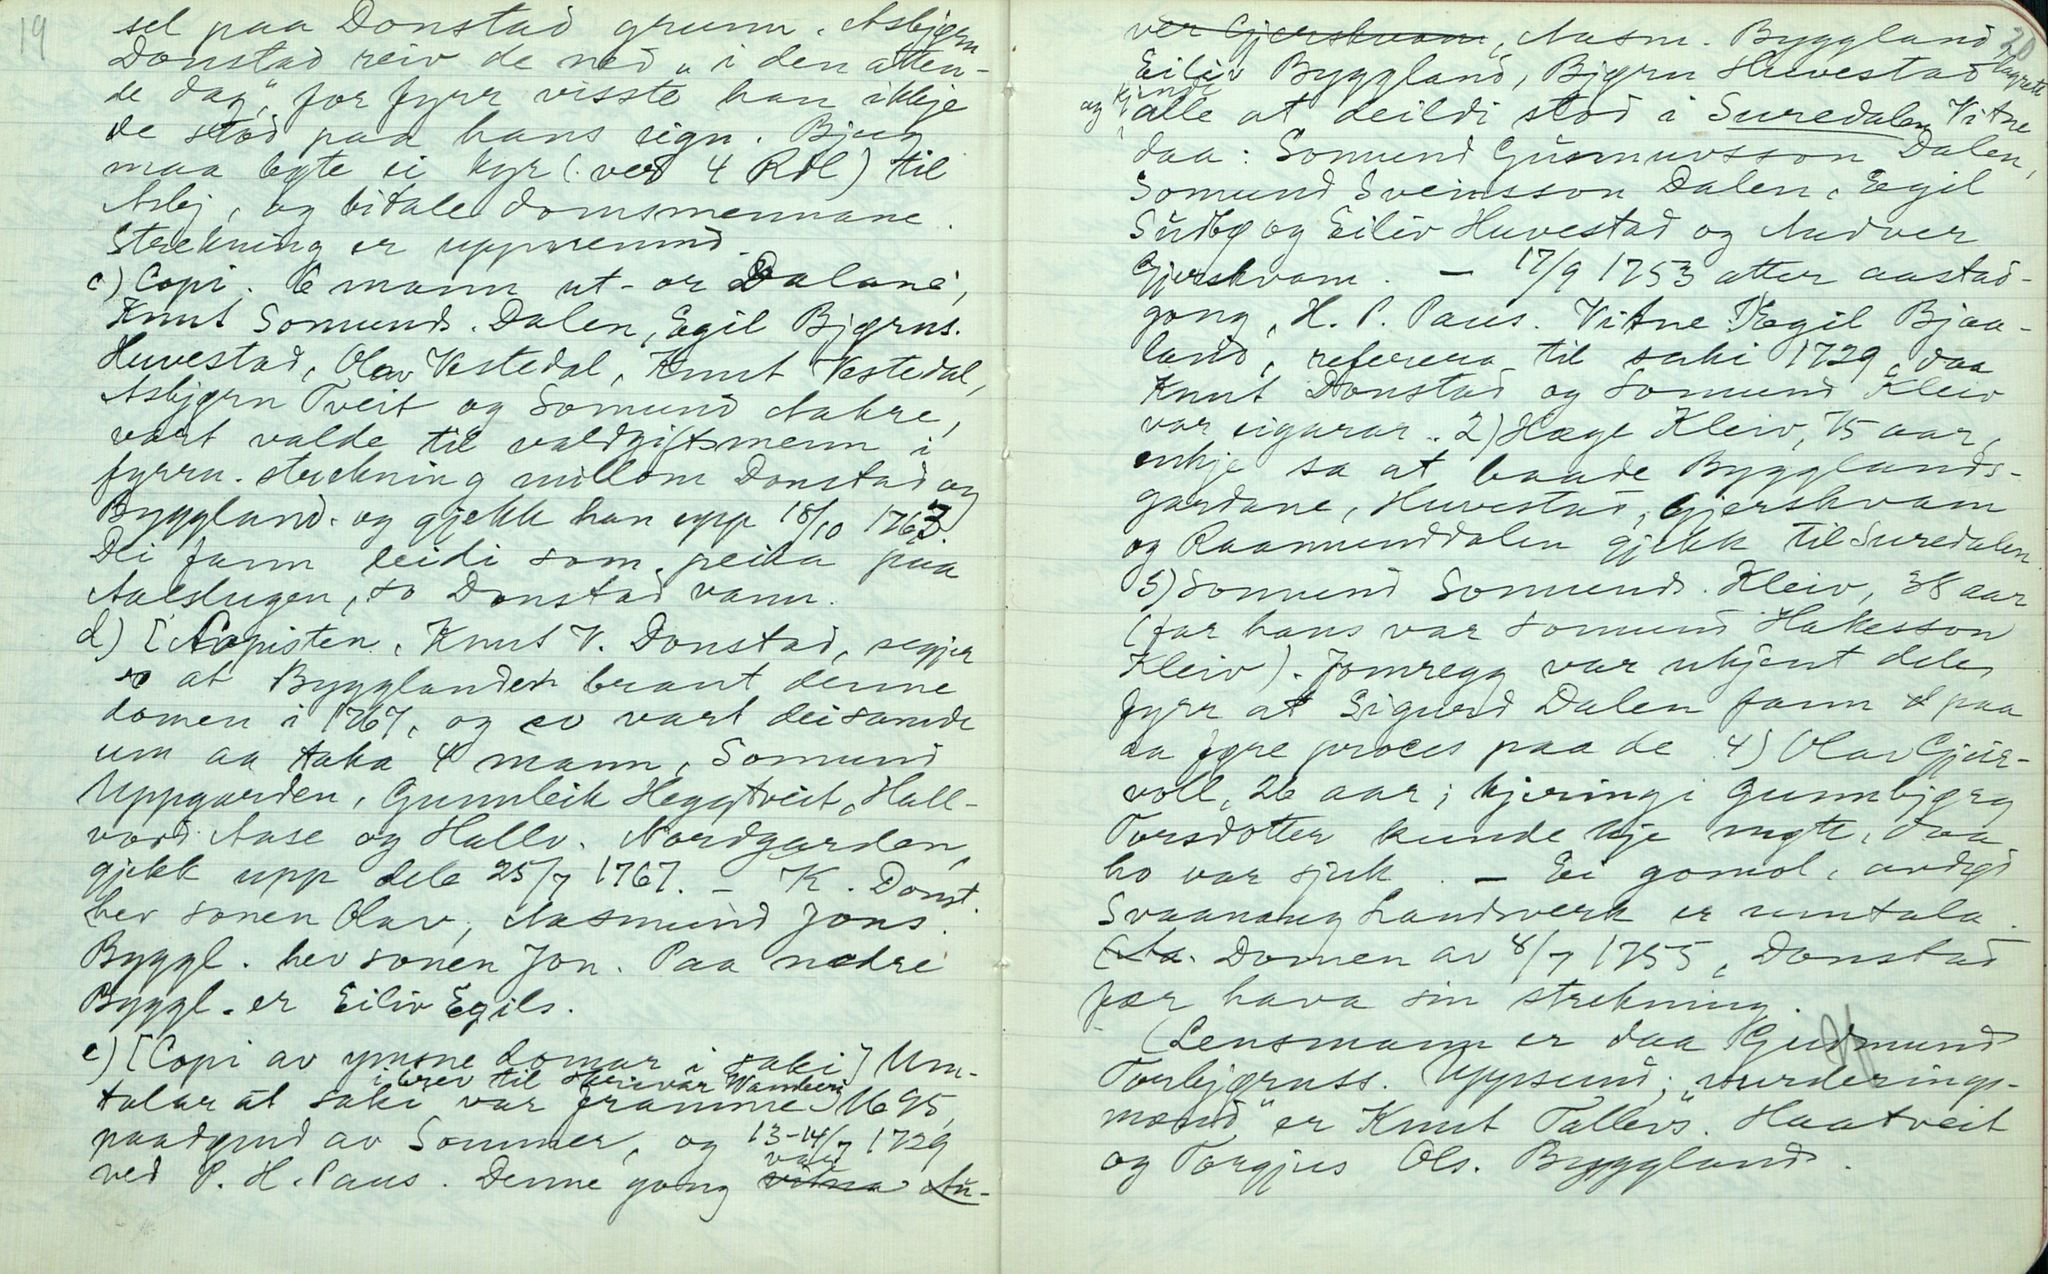 19
sel paa Donstad grunn. Asbjørn
Donstad reiv de ned „i den atten-
de dag", for fyrr visste han ikkje
de stod paa hans eign. Bjug
maa bøte ei kyr (verd 4 Rdl) til
Asbj, og bitale domsmennane.
Strekning er uppnemnd.
c) Copi. 6 mann ut-or Dalane,
Knut Somunds. Dalen, Egil Bjørns.
Huvestad, Olav Vestedal, Knut Vestedal,
Asbjørn Tveit og Somund Aakre,
vart valde til valdgiftsmenn i
fyrrn. strekning millom Donstad og
Byggland. og gjekk han upp 18/10 1763.
Dei fann leidi som peika paa
Aalslugen, so Donstad vann.
d) [Copisten, Knut V. Donstad, segjer
so at Bygglanden braut denne
domen i 1767, og so vart dei samde
um aa taka 4 mann, Somund
Uppgarden, Gunnleik Heggtveit, Hall-
vord Aase og Hallv. Nordgarden,
gjekk upp dele 25/7 1767. – K. Donst.
hev sonen Olav, Aasmund Jons.
Byggl. hev sonen Jon. Paa nedre
Byggl. er Eiliv Egils.
e) [Copi av ymsne domar i saki] Um-
i brev til skrivar Wamberg
talar at saki var framme 1695,
paadømd av Sommer, og 13-14/7 1729
vart
ved P. H. Paus. Denne gong vitna Au-
20
ver Gjerskvam, Aasm. Byggland
Eiliv Byggland, Bjørn Huvestad lagrett
kjende
og alle at deildi stod i Suredalen Vitne
daa: Somund Gunnuvsson Dalen,
Somund Sveinsson Dalen, Egil
Sudbø og Eiliv Huvestad og Audver
Gjerskvam. – 17/9 1753 atter aastad-
gong, H. P. Paus. Vitne 1) Egil Bjaa-
land, referera til saki 1729, daa
Knut Donstad og Somund Kleiv
var eigarar. 2) Hæge Kleiv, 75 aar,
enkje sa at baade Bygglands-
gardane, Huvestad, Gjerskvam
og Raamunddalen gjekk til Suredalen
3) Somund Somunds. Kleiv, 38 aar
(far hans var Somund Hakesson
Kleiv). Jomregg var ukjent dele
fyrr at Sigurd Dalen fann paa
aa føre proces paa de 4) Olav Gjur-
voll, 26 aar; kjeringi Gunnbjørg
Torsdotter kunde kje møte, daa
ho var sjuk. – Ei gomol, avdøi
Svaanaug Landsverk er umtala.
Domen av 8/7 1755, Donstad
fær hava sin strekning.
(Lensmann er daa Gudmund
Torbjørnss. Uppsund; „vurderings-
mænd" er Knut Tallevs. Haatveit
og Torgjus Ols. Byggland.